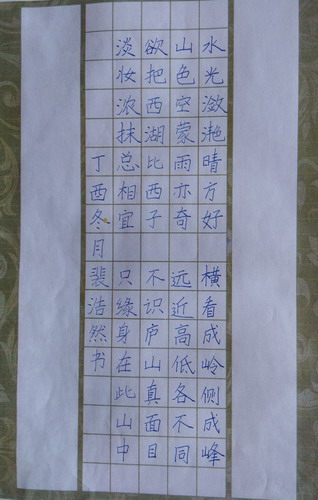 水光潋滟晴方好 横看成岭侧成峰
山色空蒙雨亦奇 远近高低各不同
欲把西湖比西子 不识庐山真面目
淡妆浓抹总相宜 只缘身在此山中
丁酉冬月裴浩然书